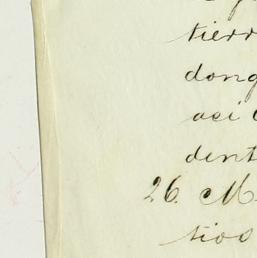 tierr
dong
asi
dent
26. M
tios